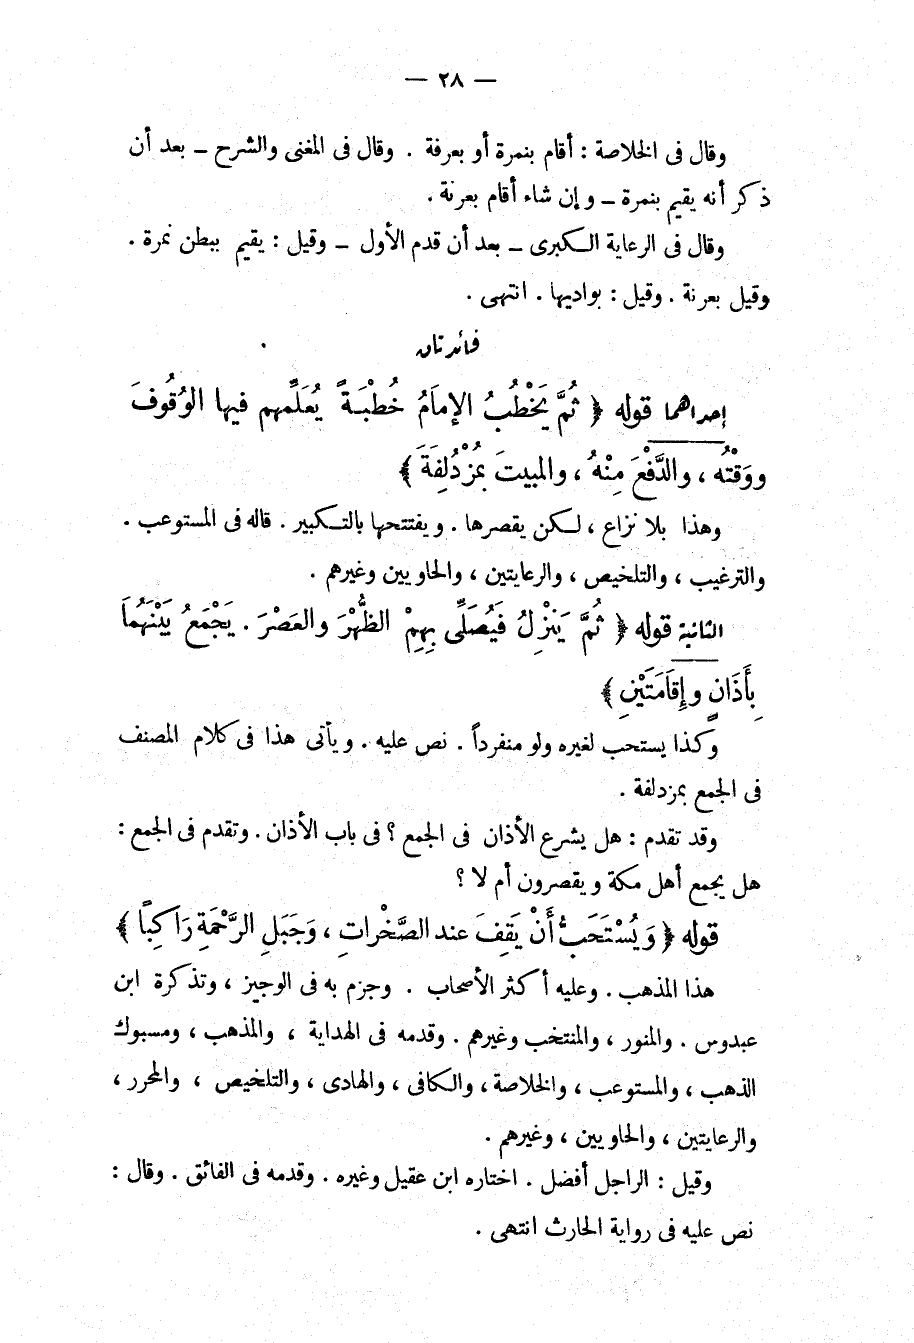 — ٢٨ —
وقال فى الخلاصة : أقام بنمرة أو بعرفة . وقال فى المغنى والشرح ــ بعد أن
ذكر أنه يقيم بنمرة ــ وإن شاء أقام بعرنة .
وقال فى الرعاية الكبرى ــ بعد أن قدم الأول ــ وقيل : يقيم ببطن نمرة .
وقيل بعرنة . وقيل : بواديها . انتهى .
فائدتان
إحداهما قوله ﴿ ثُمَّ يَخْطُبُ الإمَامُ خُطْبَةً يُعَلِّمهم فيها الوُقُوفَ
ووَقْتُه ، والدَّفْعَ مِنْهُ ، والمبيتَ بمُزْدُلِفَةَ ﴾
وهذا بلا نزاع ، لكن يقصرها . ويفتتحها بالتكبير . قاله فى المستوعب .
والترغيب ، والتلخيص ، والرعايتين ، والحاويين وغيرهم .
الثانية قوله ﴿ ثُمَّ يَنزِلُ فَيُصَلِّى بِهِمْ الظُّهْرَ والعَصْرَ . يَجْمَعُ بَيْنَهُمَا
بِأَذَانٍ وإِقَامَتَيْنِ ﴾
وكذا يستحب لغيره ولو منفرداً . نص عليه . ويأتى هذا فى كلام المصنف
فى الجمع بمزدلفة .
وقد تقدم : هل يشرع الأذان فى الجمع ؟ فى باب الأذان . وتقدم فى الجمع :
هل يجمع أهل مكة ويقصرون أم لا ؟
قوله ﴿ وَيُسْتَحَبُّ أَنْ يَقِفَ عند الصَّخْرَاتِ ، وَجَبَلِ الرَّحْمَةِ رَاكِبًا ﴾
هذا المذهب . وعليه أكثر الأصحاب . وجزم به فى الوجيز ، وتذكرة ابن
عبدوس . والمنور ، والمنتخب وغيرهم . وقدمه فى الهداية ، والمذهب ، ومسبوك
الذهب ، والمستوعب ، والخلاصة ، والكافى ، والهادى ، والتلخيص ، والمحرر ،
والرعايتين ، والحاويين ، وغيرهم .
وقيل : الراجل أفضل . اختاره ابن عقيل وغيره . وقدمه فى الفائق . وقال :
نص عليه فى رواية الحارث انتهى .